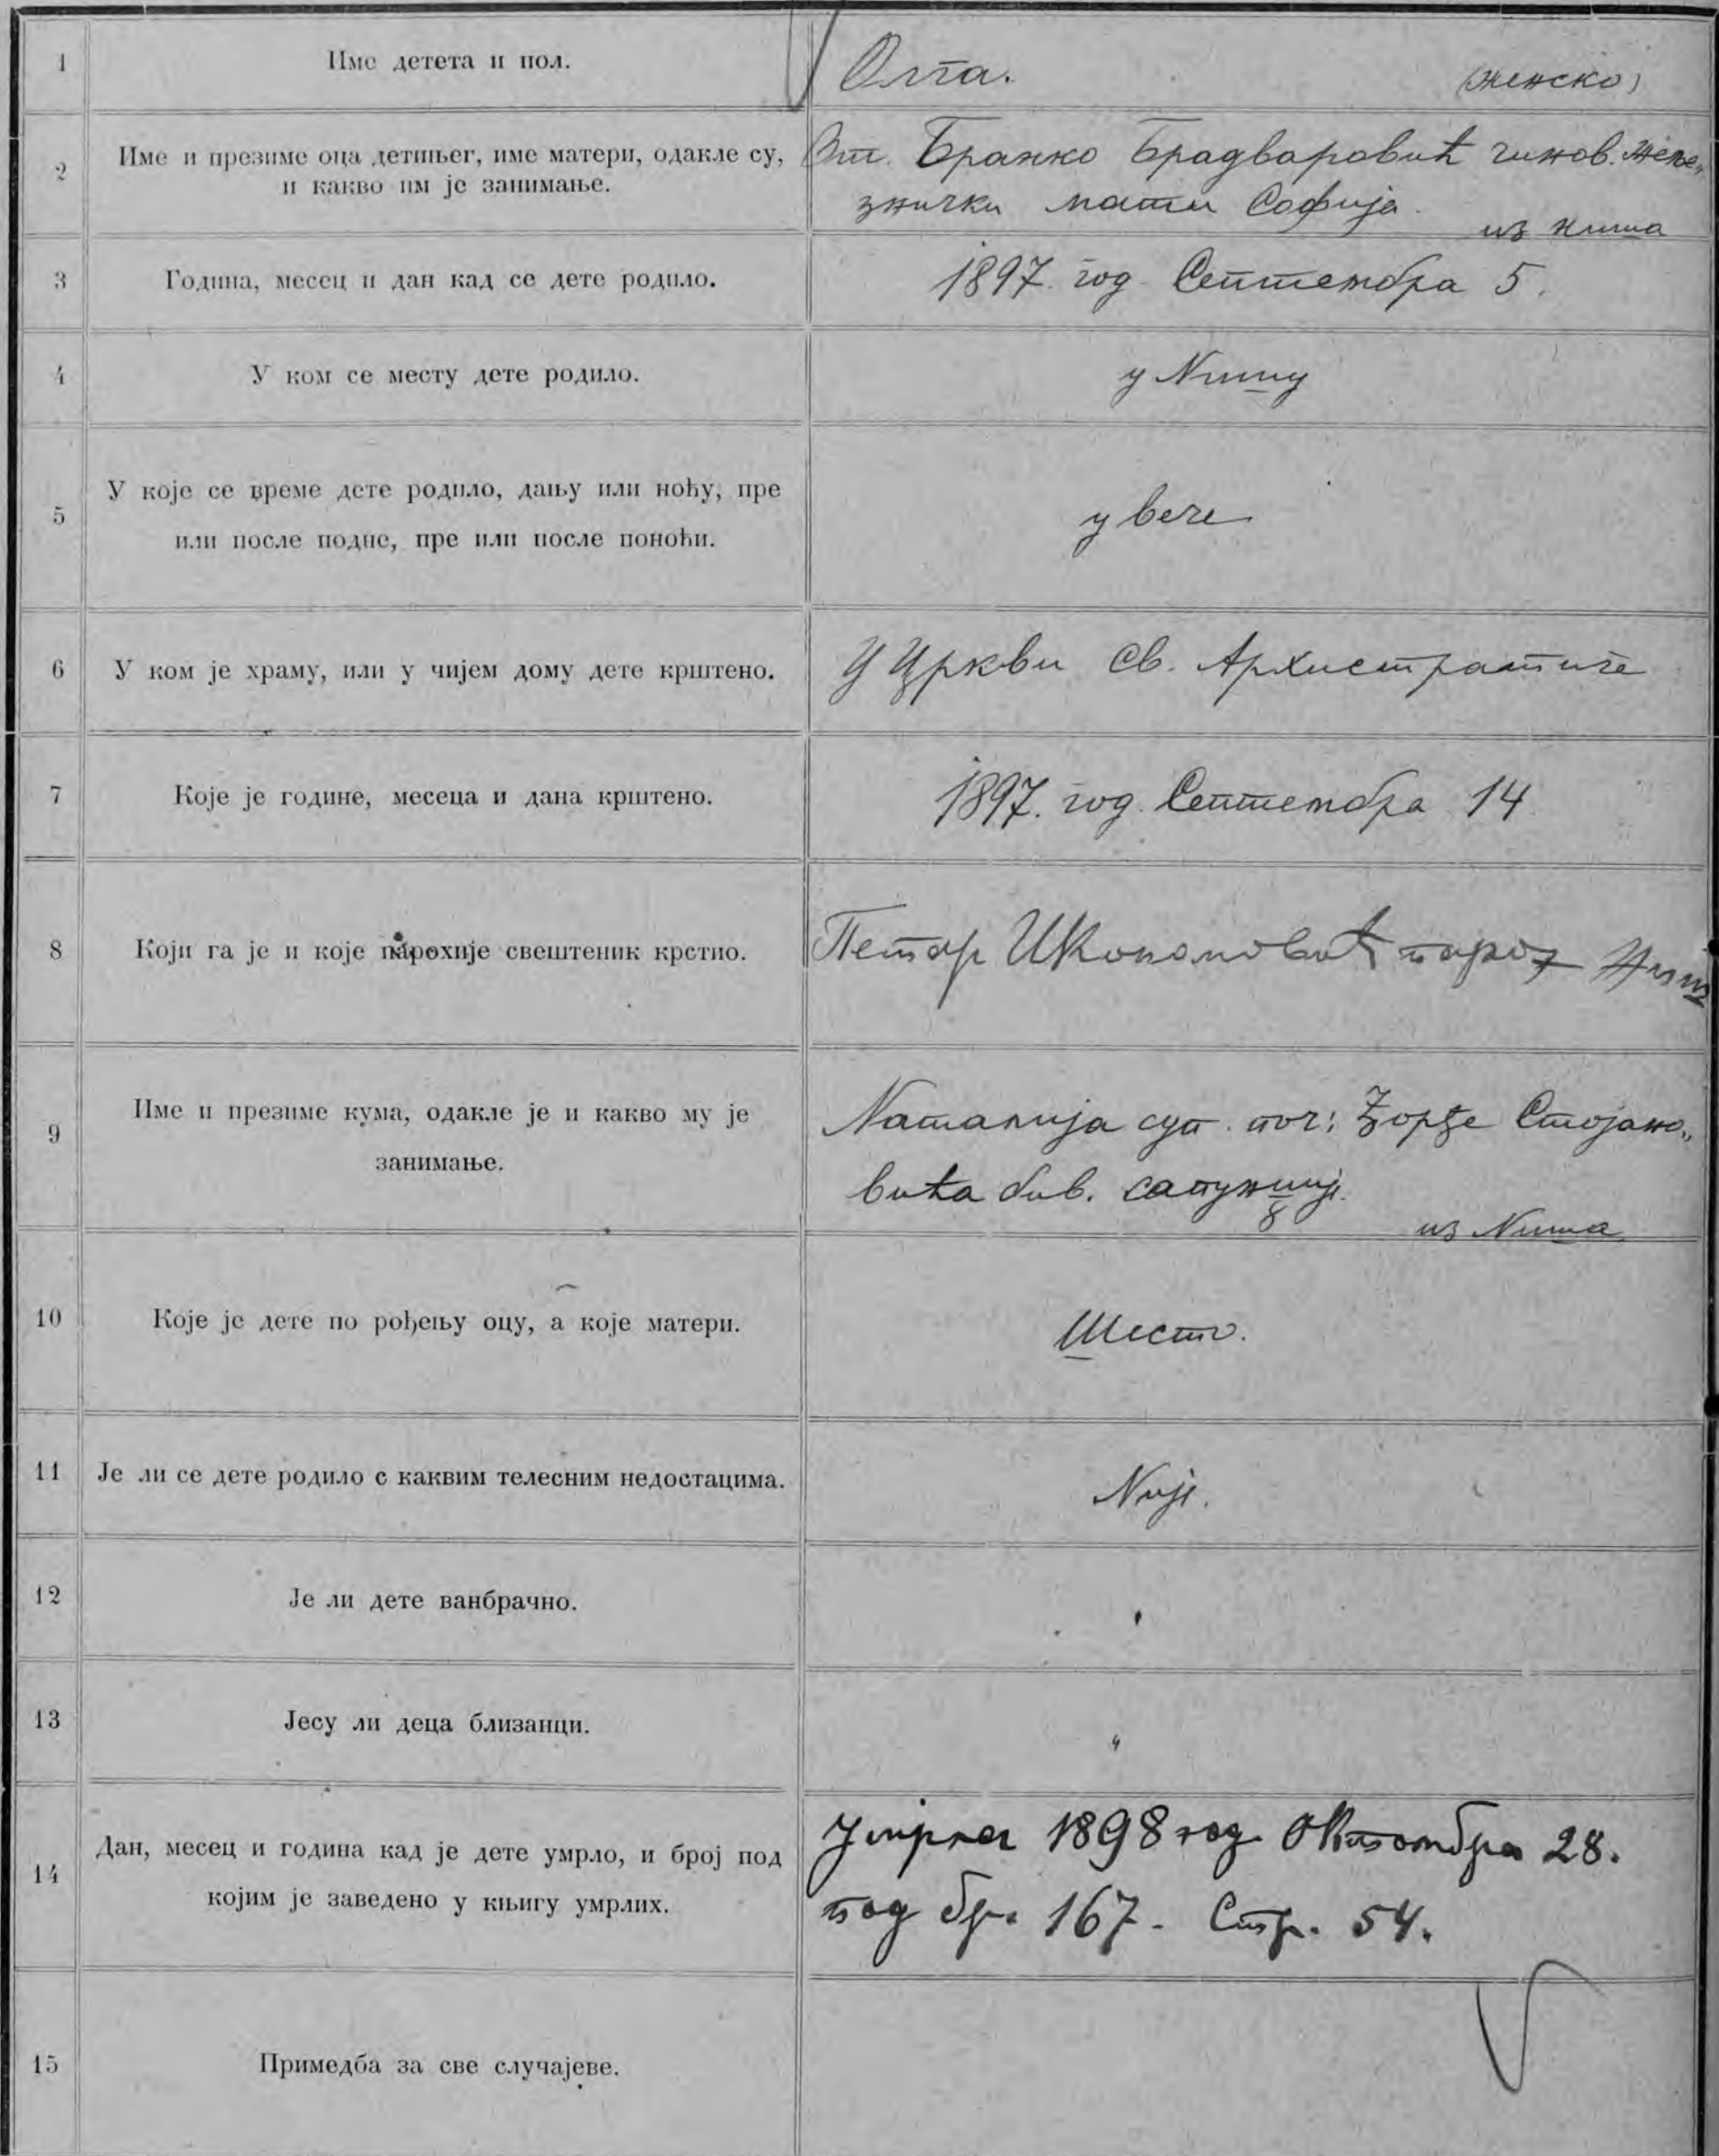 1
Име детета и пол.
Олга.
(женско)
2
Име и презиме оца детињег, име матери, одакле су,
и какво им је занимање.
От. Бранко Брадваровић чинов. желе„
знички мати Софија.
из Ниша
3
Година, месец и дан кад се дете родило.
1897. год. Септембра 5.
4
У ком се месту дете родило.
у Нишу
5
У које се време дете родило, дању или ноћу, пре
или после подне, пре или после поноћи.
у вече
6
У ком је храму, или у чијем дому дете крштено.
У Цркви Св. Архистратиге
7
Које је године, месеца и дана крштено.
1897. год. Септембра 14
8
Који га је и које парохије свештеник крстио.
Петар Икономовић парох Ниш
9
Име и презиме кума, одакле је и какво му је
занимање.
Наталија суп. поч: Ђорђе Стојано„
вића бив. сапунџиј.
из Ниша
10
Које је дете по рођењу оцу, а које матери.
Шесто.
11
Је ли се дете родило с каквим телесним недостацима.
Није.
12
Је ли дете ванбрачно.
13
Јесу ли деца близанци.
"
14
Дан, месец и година кад је дете умрло, и број под
којим је заведено у књигу умрлих.
Умрла 1898 год. Октомбра 28.
под бр. 167. Стр. 54.
15
Примедба за све случајеве.